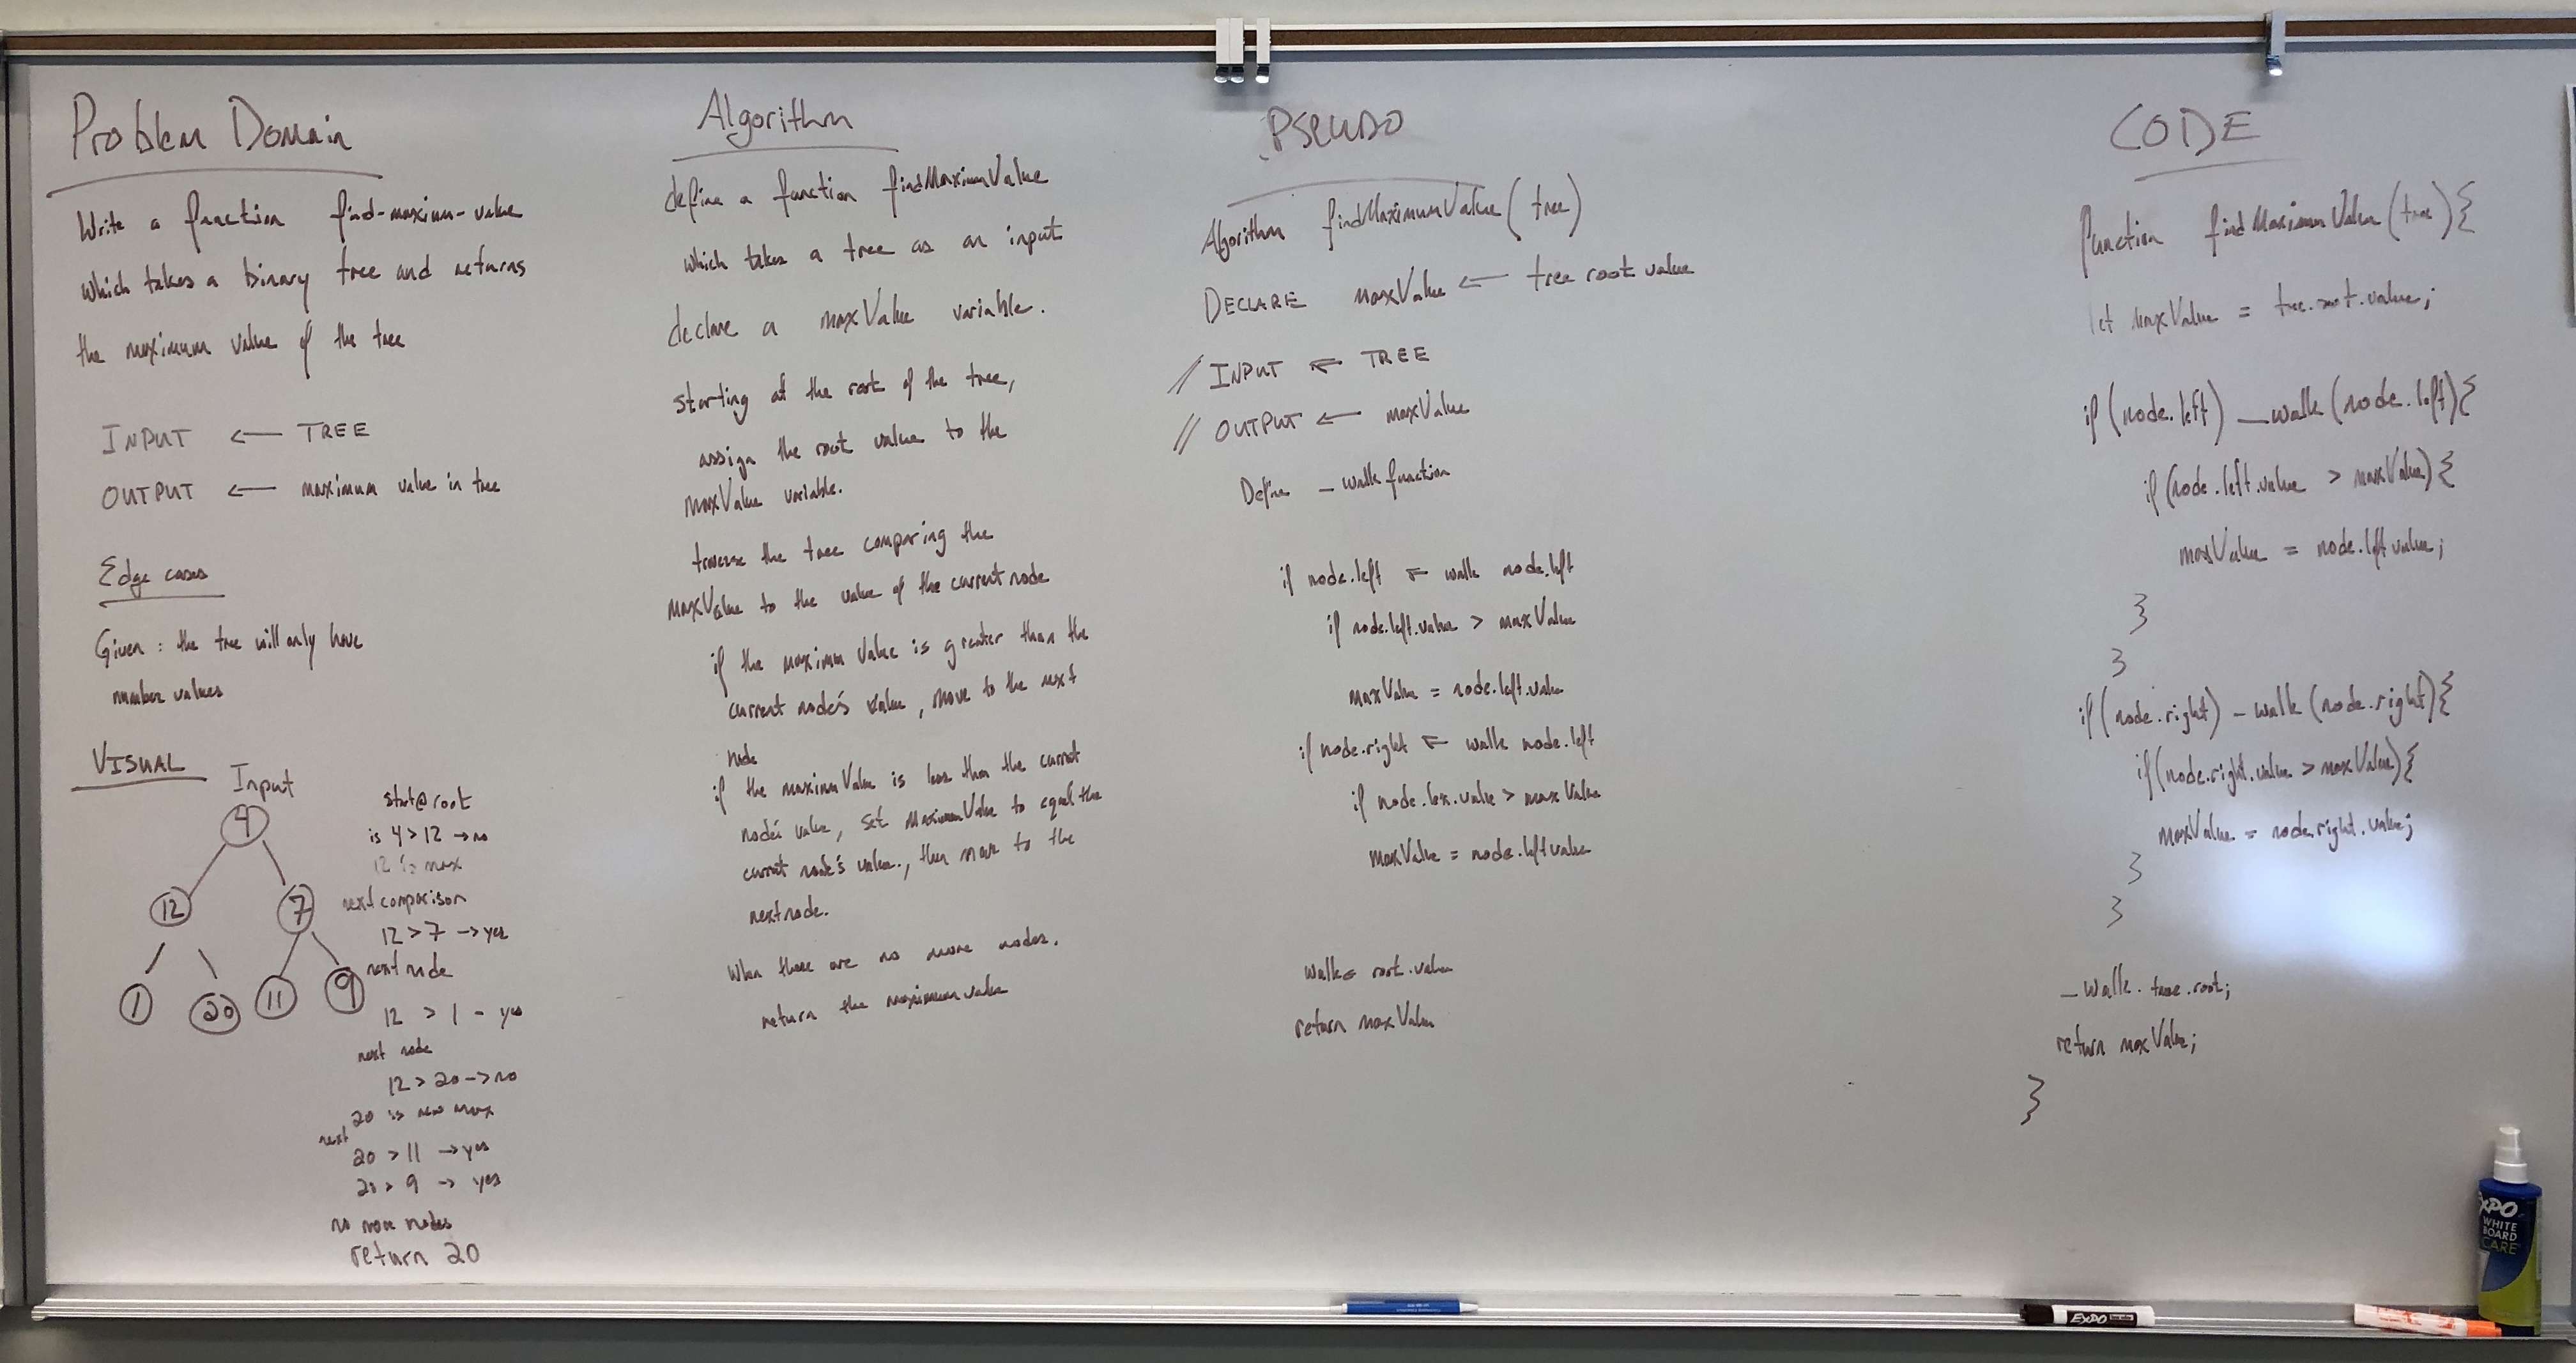 Problem Domain
Write a function find-maximum-value
which takes a binary tree and returns
the maximum value of the tree
INPUT ← TREE
OUTPUT ← maximum value in tree
Edge cases
Given : the tree will only have
number values
VISUAL
Input
4
12 7
1 20 11 9
start@root
is 4 > 12 → no
12 is max
next comparison
12 > 7 → yes
next node
12 > 1 - yes
next node
12 > 20 → no
20 is new max
next
20 > 11 → yes
20 > 9 → yes
no more nodes
return 20
Algorithm
define a function findMaximumValue
which takes a tree as an input
declare a maxValue variable.
starting at the root of the tree,
assign the root value to the
maxValue variable.
traverse the tree comparing the
maxValue to the value of the current node
if the maximum value is greater than the
current node's value, move to the next
node
if the maximumValue is less than the current
node's value, set maximumValue to equal the
current node's value, then move to the
next node.
When there are no more nodes.
return the maximum value
PSEUDO
Algorithm findMaximumValue(tree)
DECLARE maxValue ← tree root value
// INPUT ← TREE
// OUTPUT ← maxValue
Define _walk function
if node.left ← walk node.left
if node.left.value > maxValue
maxValue = node.left.value
if node.right ← walk node.left
if node. .value > maxValue
maxValue = node.left value
walk ← root.value
return maxValue
CODE
function findMaximumValue(tree){
let maxValue = tree.root.value;
if (node.left) _walk (node.left){
if (node.left.value > maxValue){
maxValue = node.left.value;
}
}
if (node.right) _walk (node.right){
if (node.right.value > maxValue){
maxValue = node.right.value;
}
}
_walk. tree.root;
return maxValue;
}
EXPO
WHITE
BOARD
CARE
EXPO